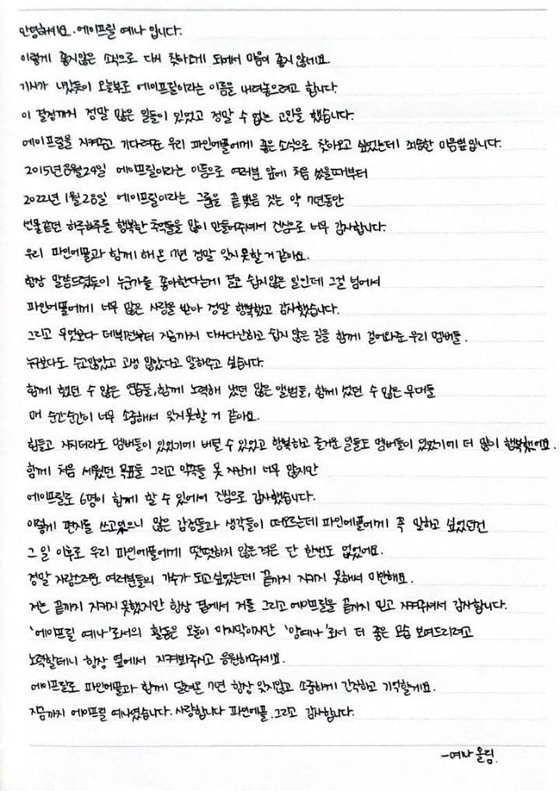 안녕하세요. 에이프릴 예나 입니다.
이렇게 좋지않은 소식으로 다시 찾아오게 되어서 마음이 좋지 않네요.
기사가 나갔듯이 오늘부로 에이프릴이라는 이름을 내려놓으려고 합니다.
이 결정까지 정말 많은 일들이 있었고 정말 수 없는 고민을 했습니다.
에이프릴을 지켜주고 기다려준 우리 파인에플에게 좋은 소식으로 찾아오고 싶었는데 죄송한 마음뿐입니다.
2015년 8월 24일 에이프릴이라는 이름으로 여러분 앞에 처음 섰을때부터
2022년 1월 28일 에이프릴이라는 그룹을 끝맺음 짓는 약 7년동안
선물같던 하루하루를 행복한 추억들을 많이 만들어주셔서 진심으로 너무 감사합니다.
우리 파인에플과 함께 해온 7년 정말 잊지 못할 거 같아요.
항상 말씀드렸듯이 누군가를 좋아한다는게 쉽지않은 일인데 그걸 넘어서
파인에플에게 너무 많은 사랑을 받아 정말 행복했고 감사했습니다.
그리고 무엇보다 데뷔전부터 지금까지 다사다난하고 쉽지 않은 길을 함께 걸어와준 우리 멤버들.
누구보다도 수고많았고 고생 많았다고 말하고 싶습니다.
함께 했던 수 많은 연습들, 함께 노력해 냈던 많은 앨범들, 함께 섰던 수 많은 무대들
매 순간순간이 너무 소중해서 잊지못할 거 같아요.
힘들고 지치더라도 멤버들이 있었기에 버틸 수 있었고 행복하고 즐거운 일들도 멤버들이 있었기에 더 많이 행복했어요.
함께 처음 세웠던 목표들 그리고 약속들 못 지킨게 너무 많지만
에이프릴로 6명이 함께 할 수 있어서 진심으로 감사했습니다.
이렇게 편지를 쓰고있으니 많은 감정들과 생각들이 떠오르는데 파인에플에게 꼭 말하고 싶었던건
그 일 이후로 우리 파인에플에게 떳떳하지 않은적은 단 한번도 없었어요.
정말 자랑스러운 여러분들의 가수가 되고싶었는데 끝까지 지키지 못해서 미안해요.
저는 끝까지 지키지 못했지만 항상 곁에서 저를 그리고 에이프릴을 끝까지 믿고 지켜주셔서 감사합니다.
'에이프릴 예나'로서의 활동은 오늘이 마지막이지만 '양예나'로서 더 좋은 모습 보여드리려고
노력할테니 항상 옆에서 지켜봐주시고 응원해주세요.
에이프릴로 파인에플과 함께 달려온 7년 항상 잊지않고 소중하게 간직하고 기억할게요.
지금까지 에이프릴 예나였습니다. 사랑합니다 파인에플. 그리고 감사합니다.
-예나 올림.